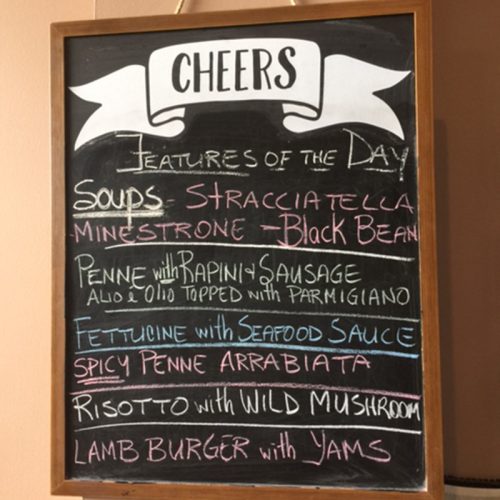 CHEERS
FEATURES OF THE DAY
SOUPS - STRACCIATELLA
MINESTRONE - Black BEAN
PENNE with RAPINI & SAUSAGE
ALIO é OliO TOPPED with PARMIGIANO
FETTUCINE with SEAFOOD SAUCE
SPICY PENNE ARRABIATA
RISOTTO with WILD MUSHROOM
LAMB BURGER with YAMS